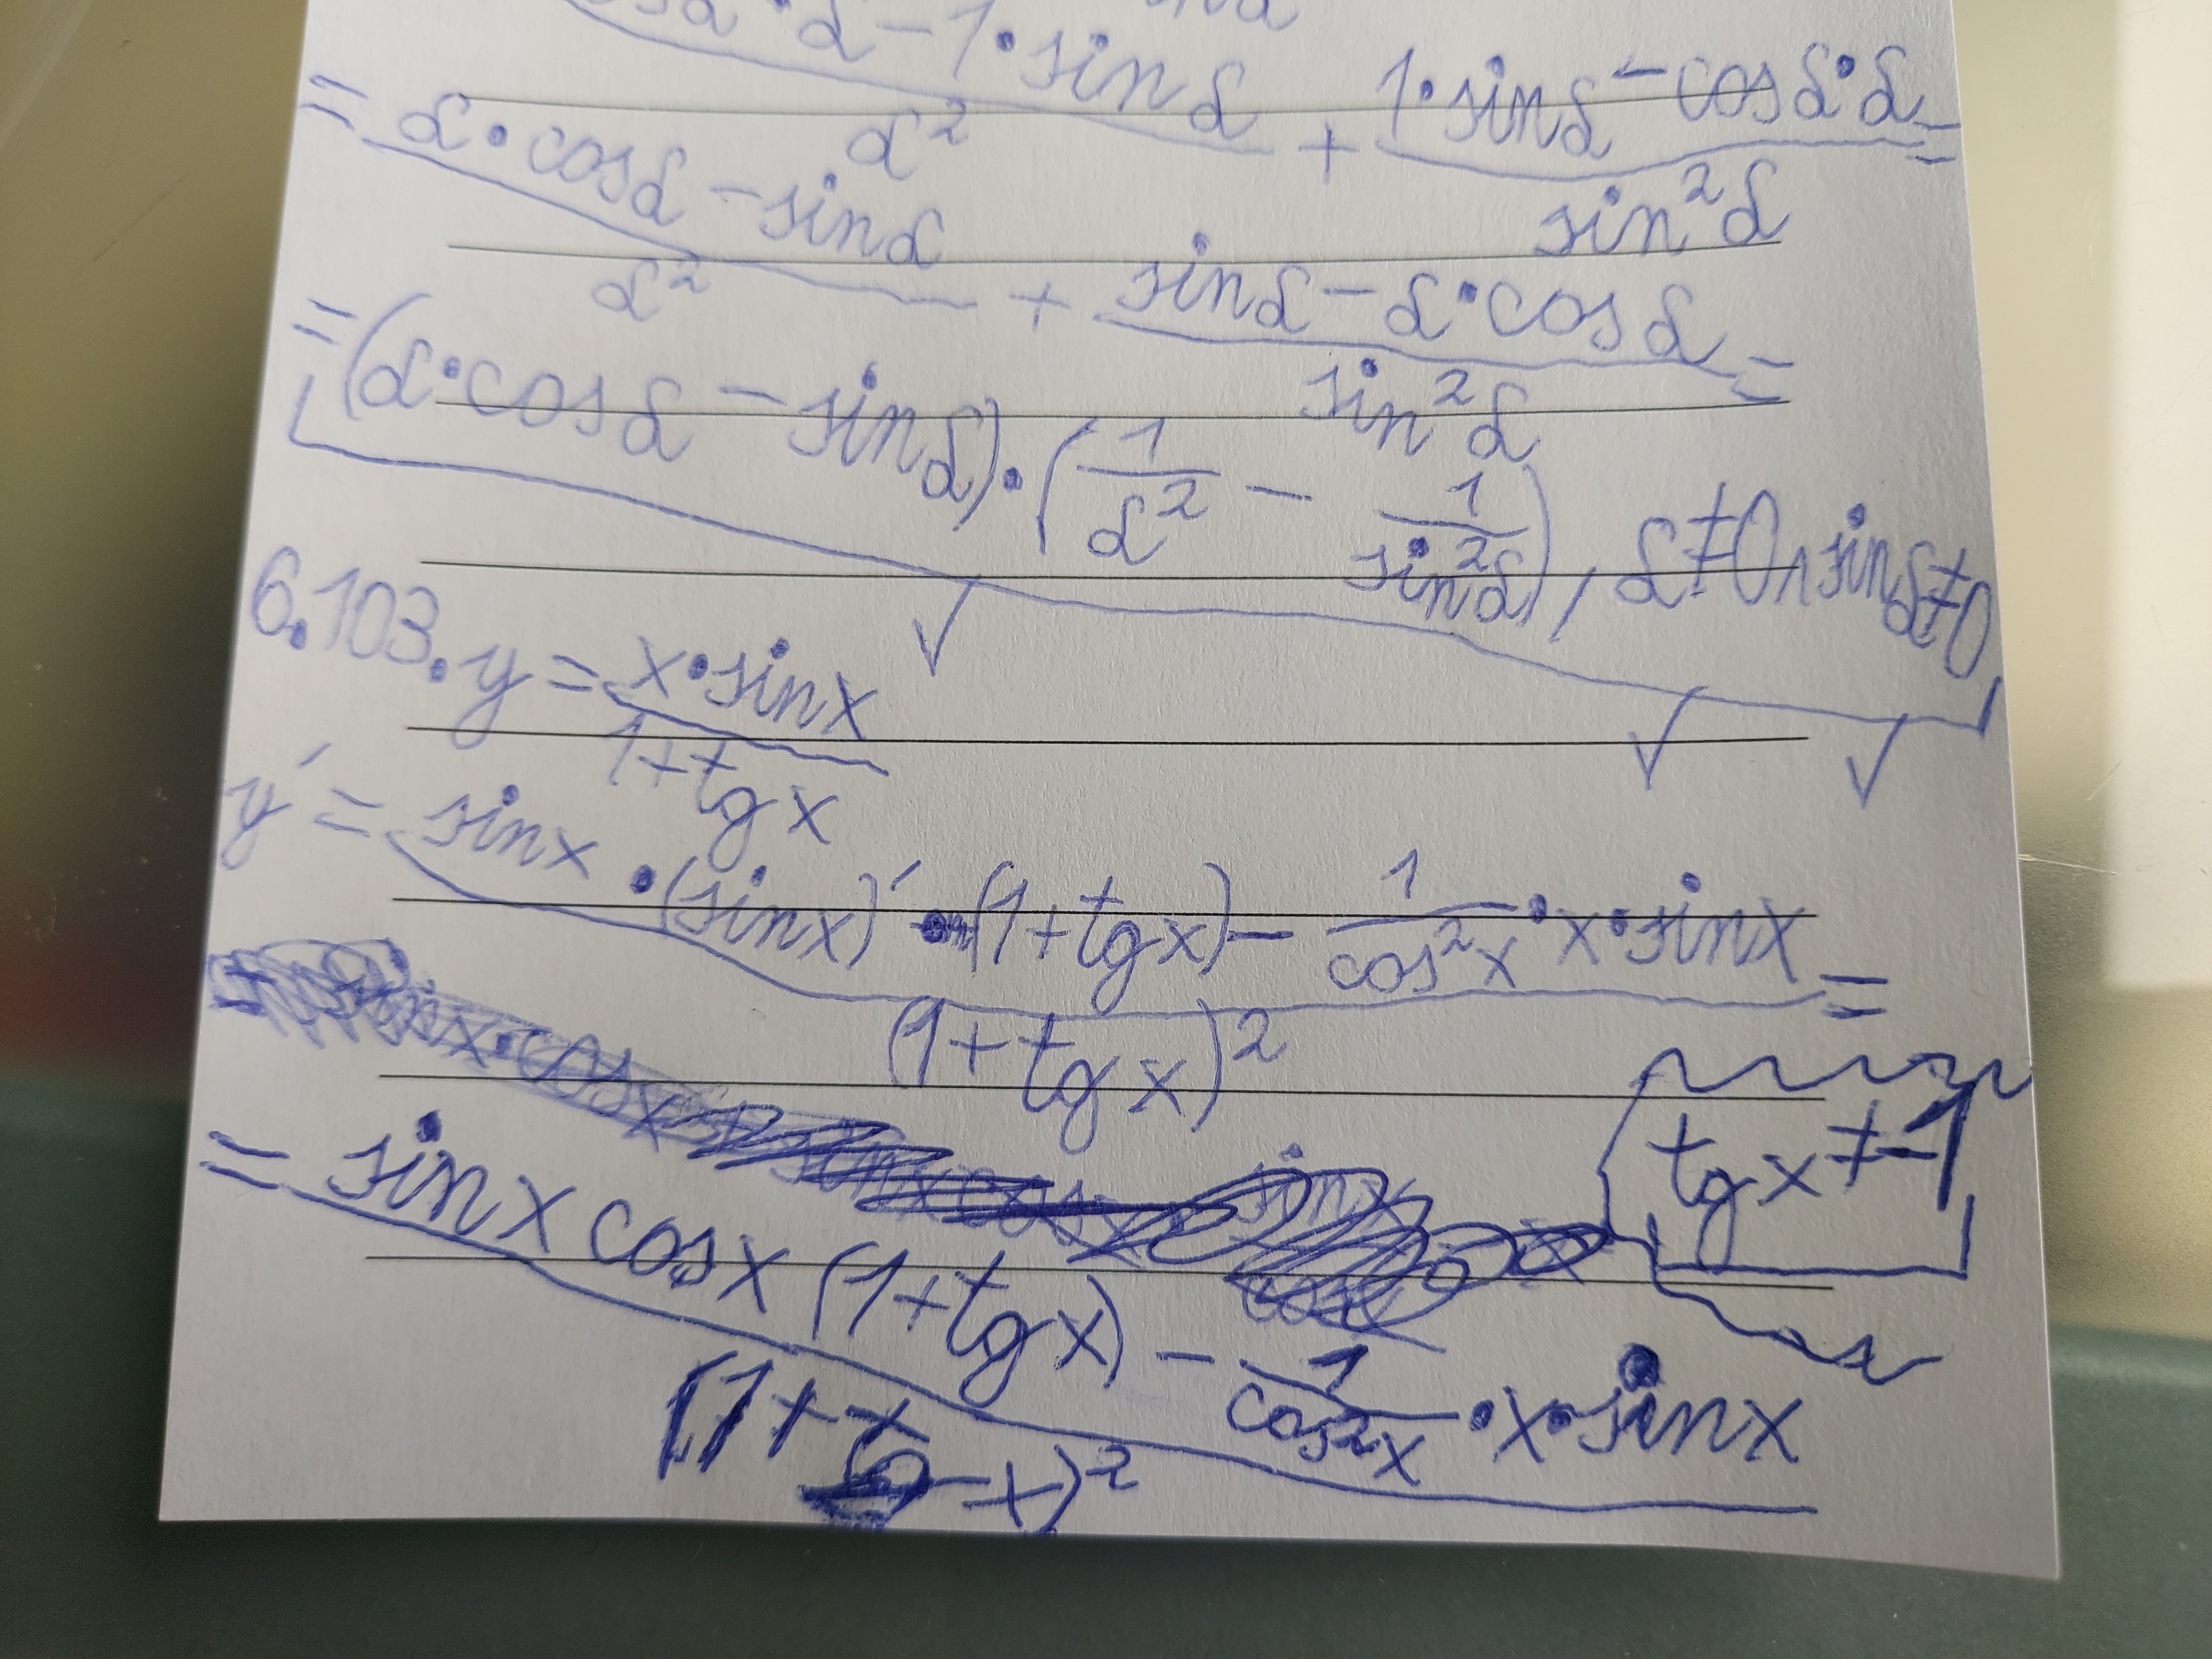 cosα·α-1·sinα / α² + 1·sinα-cosα·α / sin²α =
= α·cosα-sinα / α² + sinα-α·cosα / sin²α =
= (α·cosα-sinα)·(1/α² - 1/sin²α), α≠0∧sinα≠0
6.103. y = x·sinx / 1+tgx
y' = sinx·(sinx)'·(1+tgx) - 1/cos²x·x·sinx / (1+tgx)² =
tgx≠-1
= sinx cosx (1+tgx) - 1/cos²x·x·sinx / (1+tg x)²